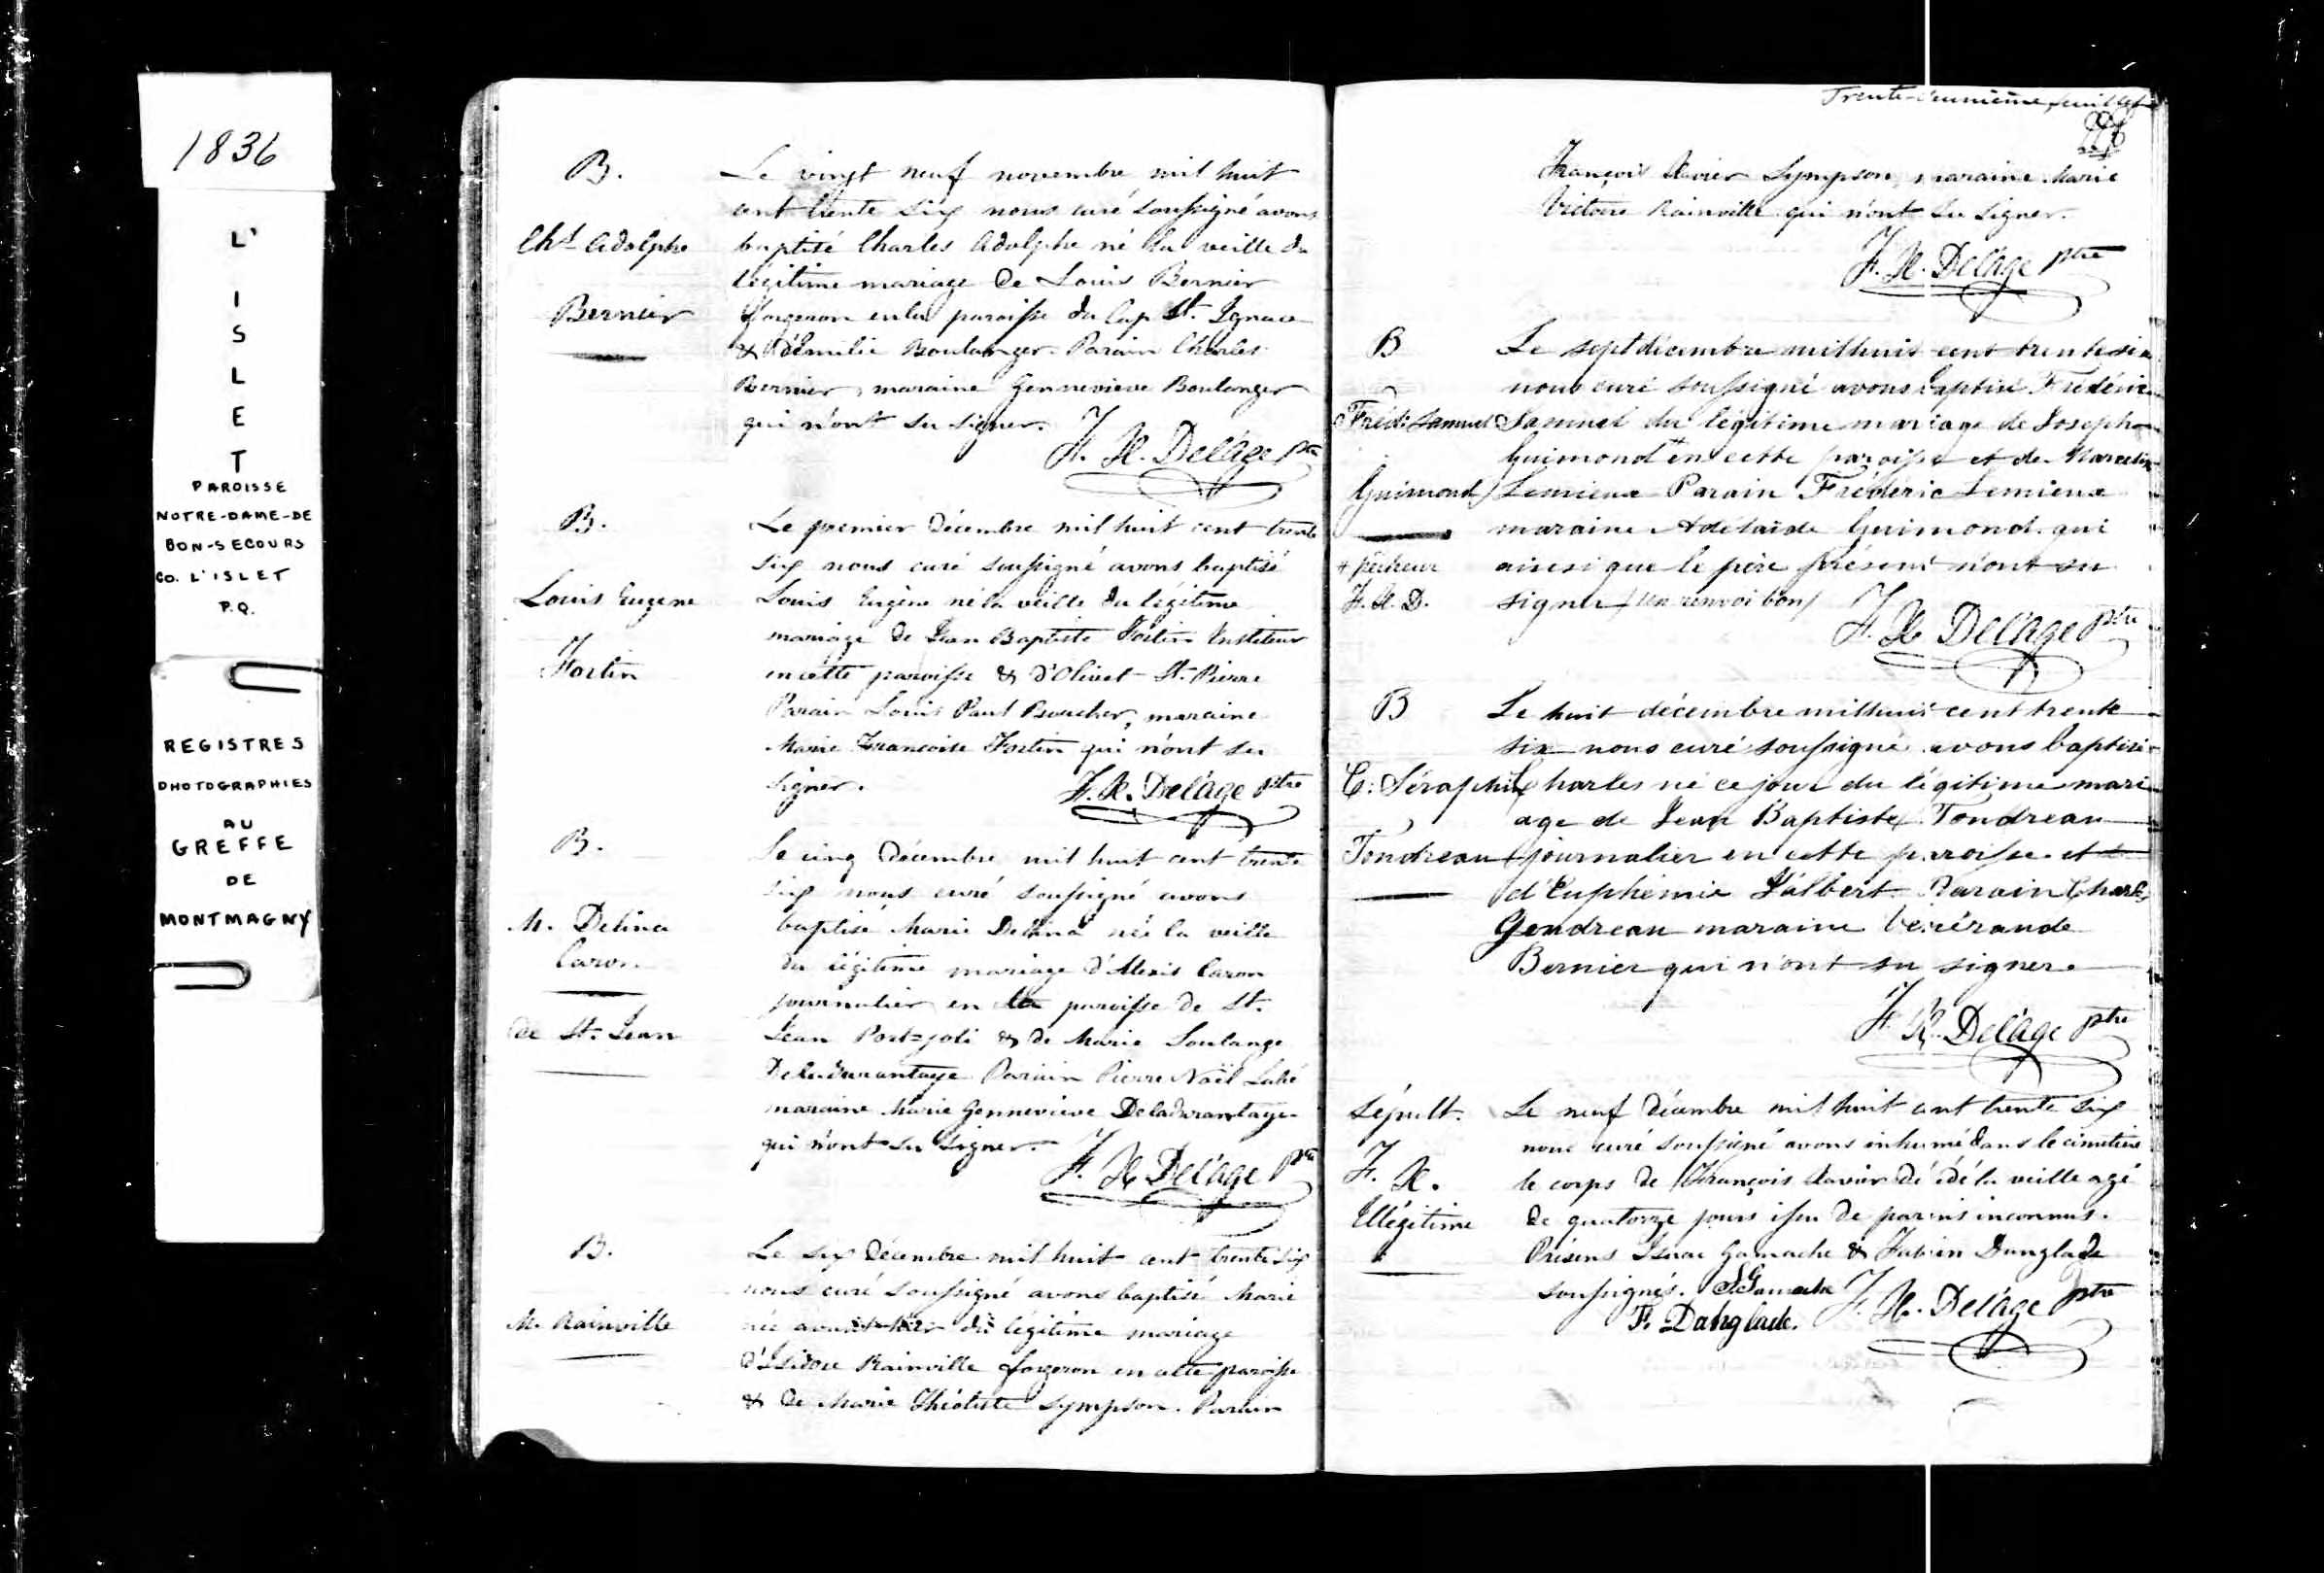 1836
L'
I
S
L
E
T
PAROISSE
NOTRE-DAME-DE
BON-SECOURS
CO. L'ISLET
P.Q.
REGISTRES
PHOTOGRAPHIES
AU
GREFFE
DE
MONTMAGNY
B.
Chs Adolphe
Bernier
Le vingt neuf novembre mil huit
cent trente six nous curé soussigné avons
baptisé Charles Adolphe né la veille du
légitime mariage de Louis Bernier
forgeron en la paroisse du Cap St. Ignace
& d'Emilie Boulanger. Parain Charles
Bernier, maraine Genneviève Boulanger
qui n'ont su signer.
F. X. Delâge ptre
B.
Louis Eugene
Fortin
Le premier décembre mil huit cent trente
six nous curé soussigné avons baptisé
Louis Eugène né la veille du légitime
mariage de Jean Baptiste Fortin
en cette paroisse & d'Olivet St. Pierre
Parain Louis Paul Boucher, maraine
Marie Françoise Fortin qui n'ont su
signer.
F. X. Delâge ptre
B.
M. Delina
Caron
de St. Jean
Le cinq décembre mil huit cent trente
six nous curé soussigné avons
baptisé Marie Delina née la veille
du légitime mariage d'Alexis Caron
journalier en la paroisse de St.
Jean Port=joli & de Marie Soulange
Deladurantaye Parain Pierre Noël
maraine Marie Genneviève Deladurantaye
qui n'ont su signer.
F. X. Delâge ptre
B.
M. Rainville
Le six décembre mil huit cent trente six
nous curé soussigné avons baptisé Marie
née avant-hier du légitime mariage
d'Isidore Rainville forgeron en cette paroisse
& de Marie Théotiste Sympson. Parain
Trente-deuxième feuillet
François Xavier Sympson, maraine Marie
Victoire Rainville qui n'ont su signer.
F. X. Delâge ptre
B
Fréd: Samuel
Guimond
+ pêcheur
F. X. D.
Le sept décembre mil huit cent trente six
nous curé soussigné avons baptisé Frédéric
Samuel du légitime mariage de Joseph
Guimond + en cette paroisse et de
Lemieux Parain Frédéric Lemieux
maraine Adélaïde Guimond qui
ainsi que le père présent n'ont su
signer / un renvoi bon /
F. X. Delâge ptre
B
C: Séraphin
Tondreau
Le huit décembre mil huit cent trente
six nous curé soussigné avons baptisé
Charles né ce jour du légitime mari
age de Jean Baptiste Tondreau
journalier en cette paroisse et
d'Euphémie Talbert. Parain
Gendreau maraine Vénérande
Bernier qui n'ont su signer.
F. X. Delâge ptre
Sépult.
F. X.
Illégitime
Le neuf décembre mil huit cent trente six
nous curé soussigné avons inhumé dans le cimetière
le corps de François Xavier décédé la veille agé
de quatorze jours issu de parens inconnus.
Présens Isaac Gamache & Fabien Danglade
soussignés. Gamache
F. Danglade. F. X. Delâge ptre